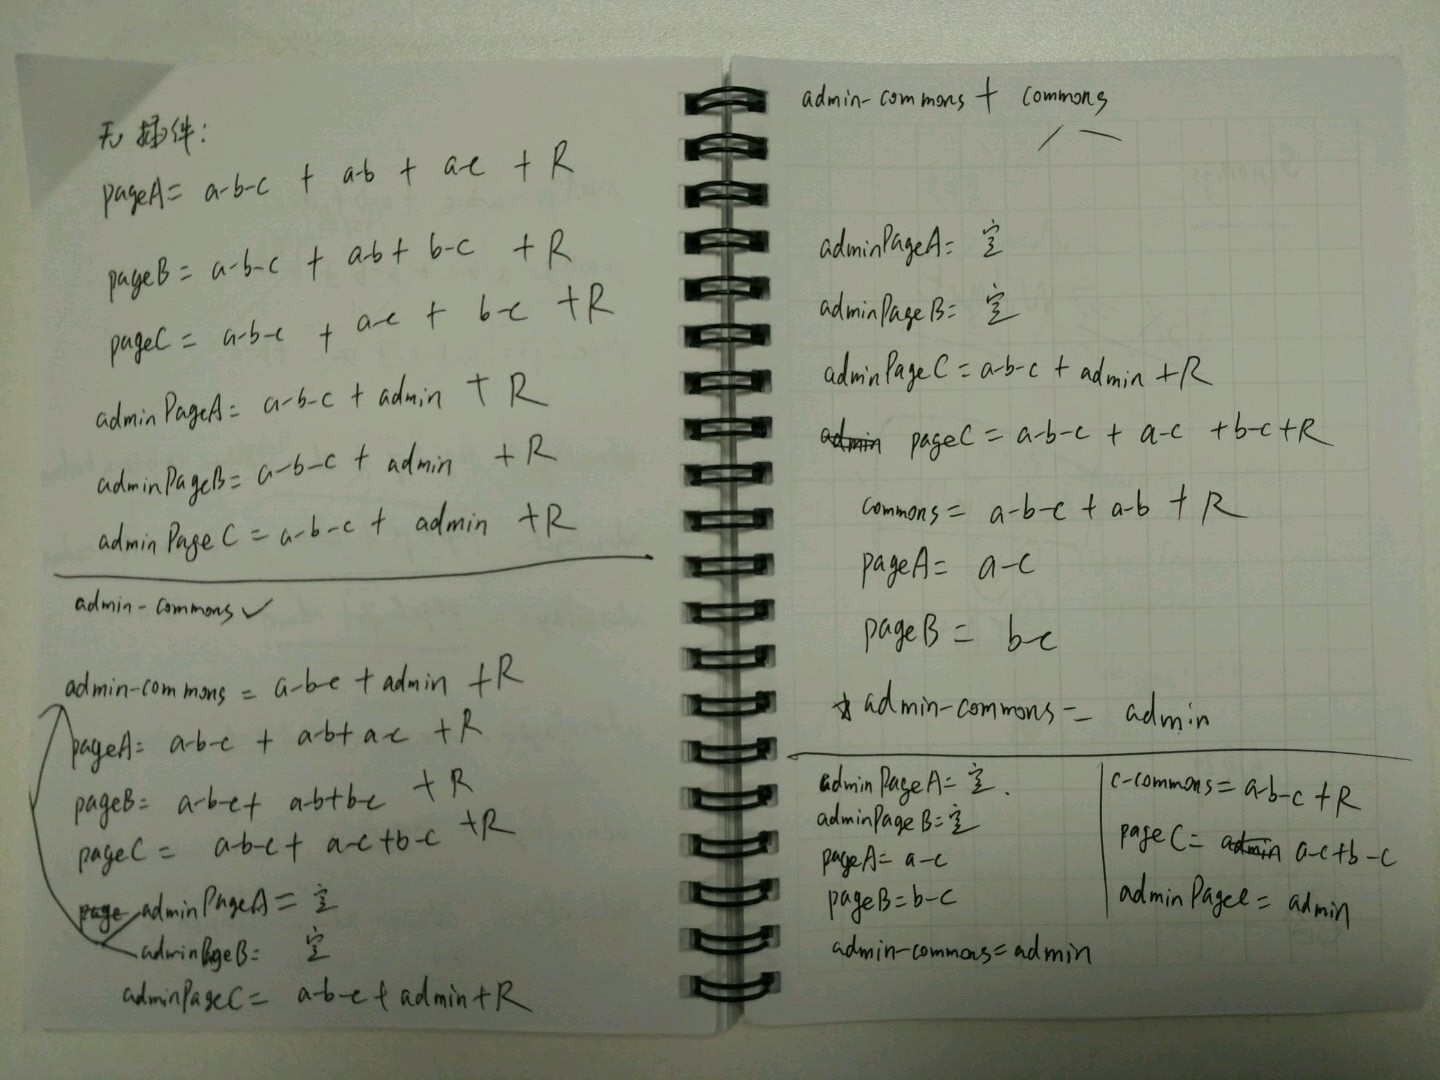 无插件:
pageA= a-b-c + a-b + a-c + R
pageB = a-b-c + a-b + b-c + R
pageC = a-b-c + a-c + b-c + R
adminPageA= a-b-c + admin + R
adminPageB= a-b-c + admin + R
adminPageC = a-b-c + admin + R
admin-commons ✓
admin-commons = a-b-c + admin + R
pageA= a-b-c + a-b + a-c + R
pageB= a-b-c + a-b+b-c + R
pageC = a-b-c + a-c+b-c +R
page adminPageA= 空
adminPageB= 空
adminPageC= a-b-c + admin+R
admin-commons + commons
adminPageA= 空
adminPageB= 空
adminPageC = a-b-c + admin +R
admin pageC = a-b-c + a-c +b-c+R
commons= a-b-c + a-b + R
pageA= a-c
pageB = b-c
admin-commons= admin
adminPageA= 空.
adminPageB=空
pageA= a-c
pageB= b-c
admin-commons=admin
c-commons= a-b-c +R
pageC= admin a-c+b-c
adminPageC= admin